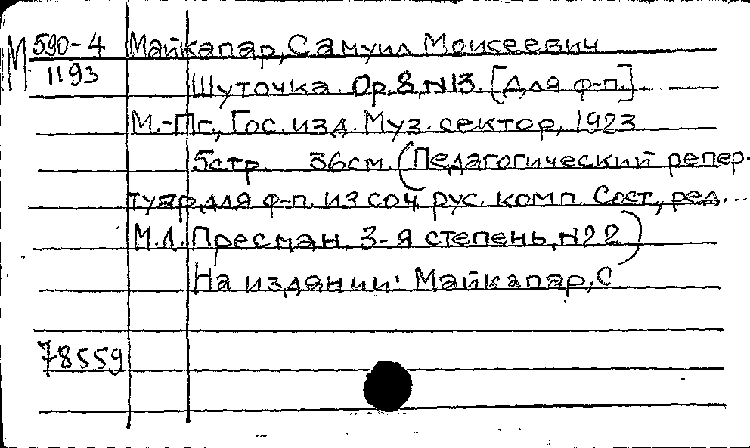 М 590-4 Майкапар, Самуил Моисеевич
1193
Шуточка. Ор. 8, №13. [Для ф-п.].
М.-Пг., Гос. изд. Муз. сектор, 1923
5стр. 36см. (Педагогический репер-
туар для ф-п. из соч. рус. комп. Сост., ред. ...
М.Л. Пресман. 3-я степень, №22)
На издании: Майкапар, С
78559